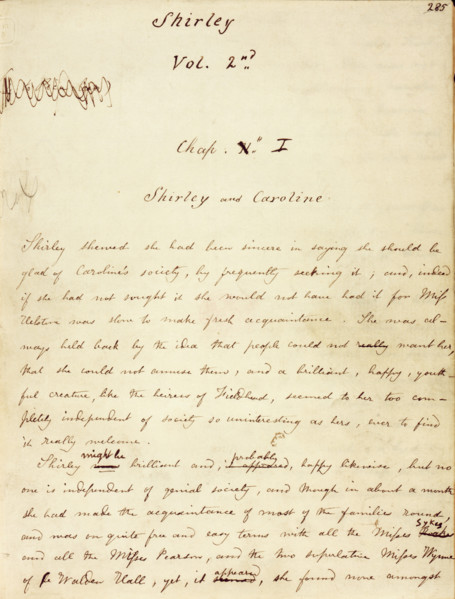 285
Shirley
Vol. 2nd
Chap. I
Shirley and Caroline
Shirley shewed she had been sincere in saying she should be
glad of Caroline's society, by frequently seeking it; and, indeed
if she had not sought it she would not have had it for Miss
Helstone was slow to make fresh acquaintance. She was al-
ways held back by the idea that people could not really want her,
that she could not amuse them; and a brilliant, happy, youth-
ful creature, like the heiress of Fieldhead, seemed to her too com-
pletely independent of society so uninteresting as hers, ever to find
it really welcome.
Shirley might be brilliant and, probably, happy likewise, but no
one is independent of genial society, and though in about a month
she had made the acquaintance of most of the families round
and was on quite free and easy terms with all the Misses Sykes,
and all the Misses Pearson, and the two superlative Misses Wynne
of Walden Hall, yet, it appeared, she found none amongst